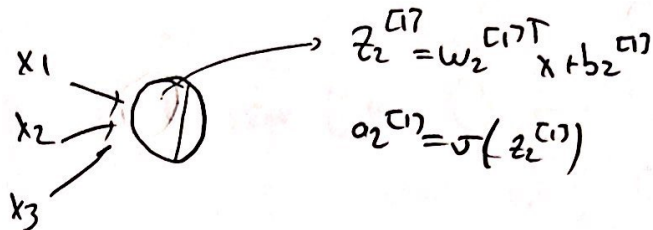 x1
x2
x3
z₂^[1] = w₂^[1]T x + b₂^[1]
a₂^[1] = σ(z₂^[1])